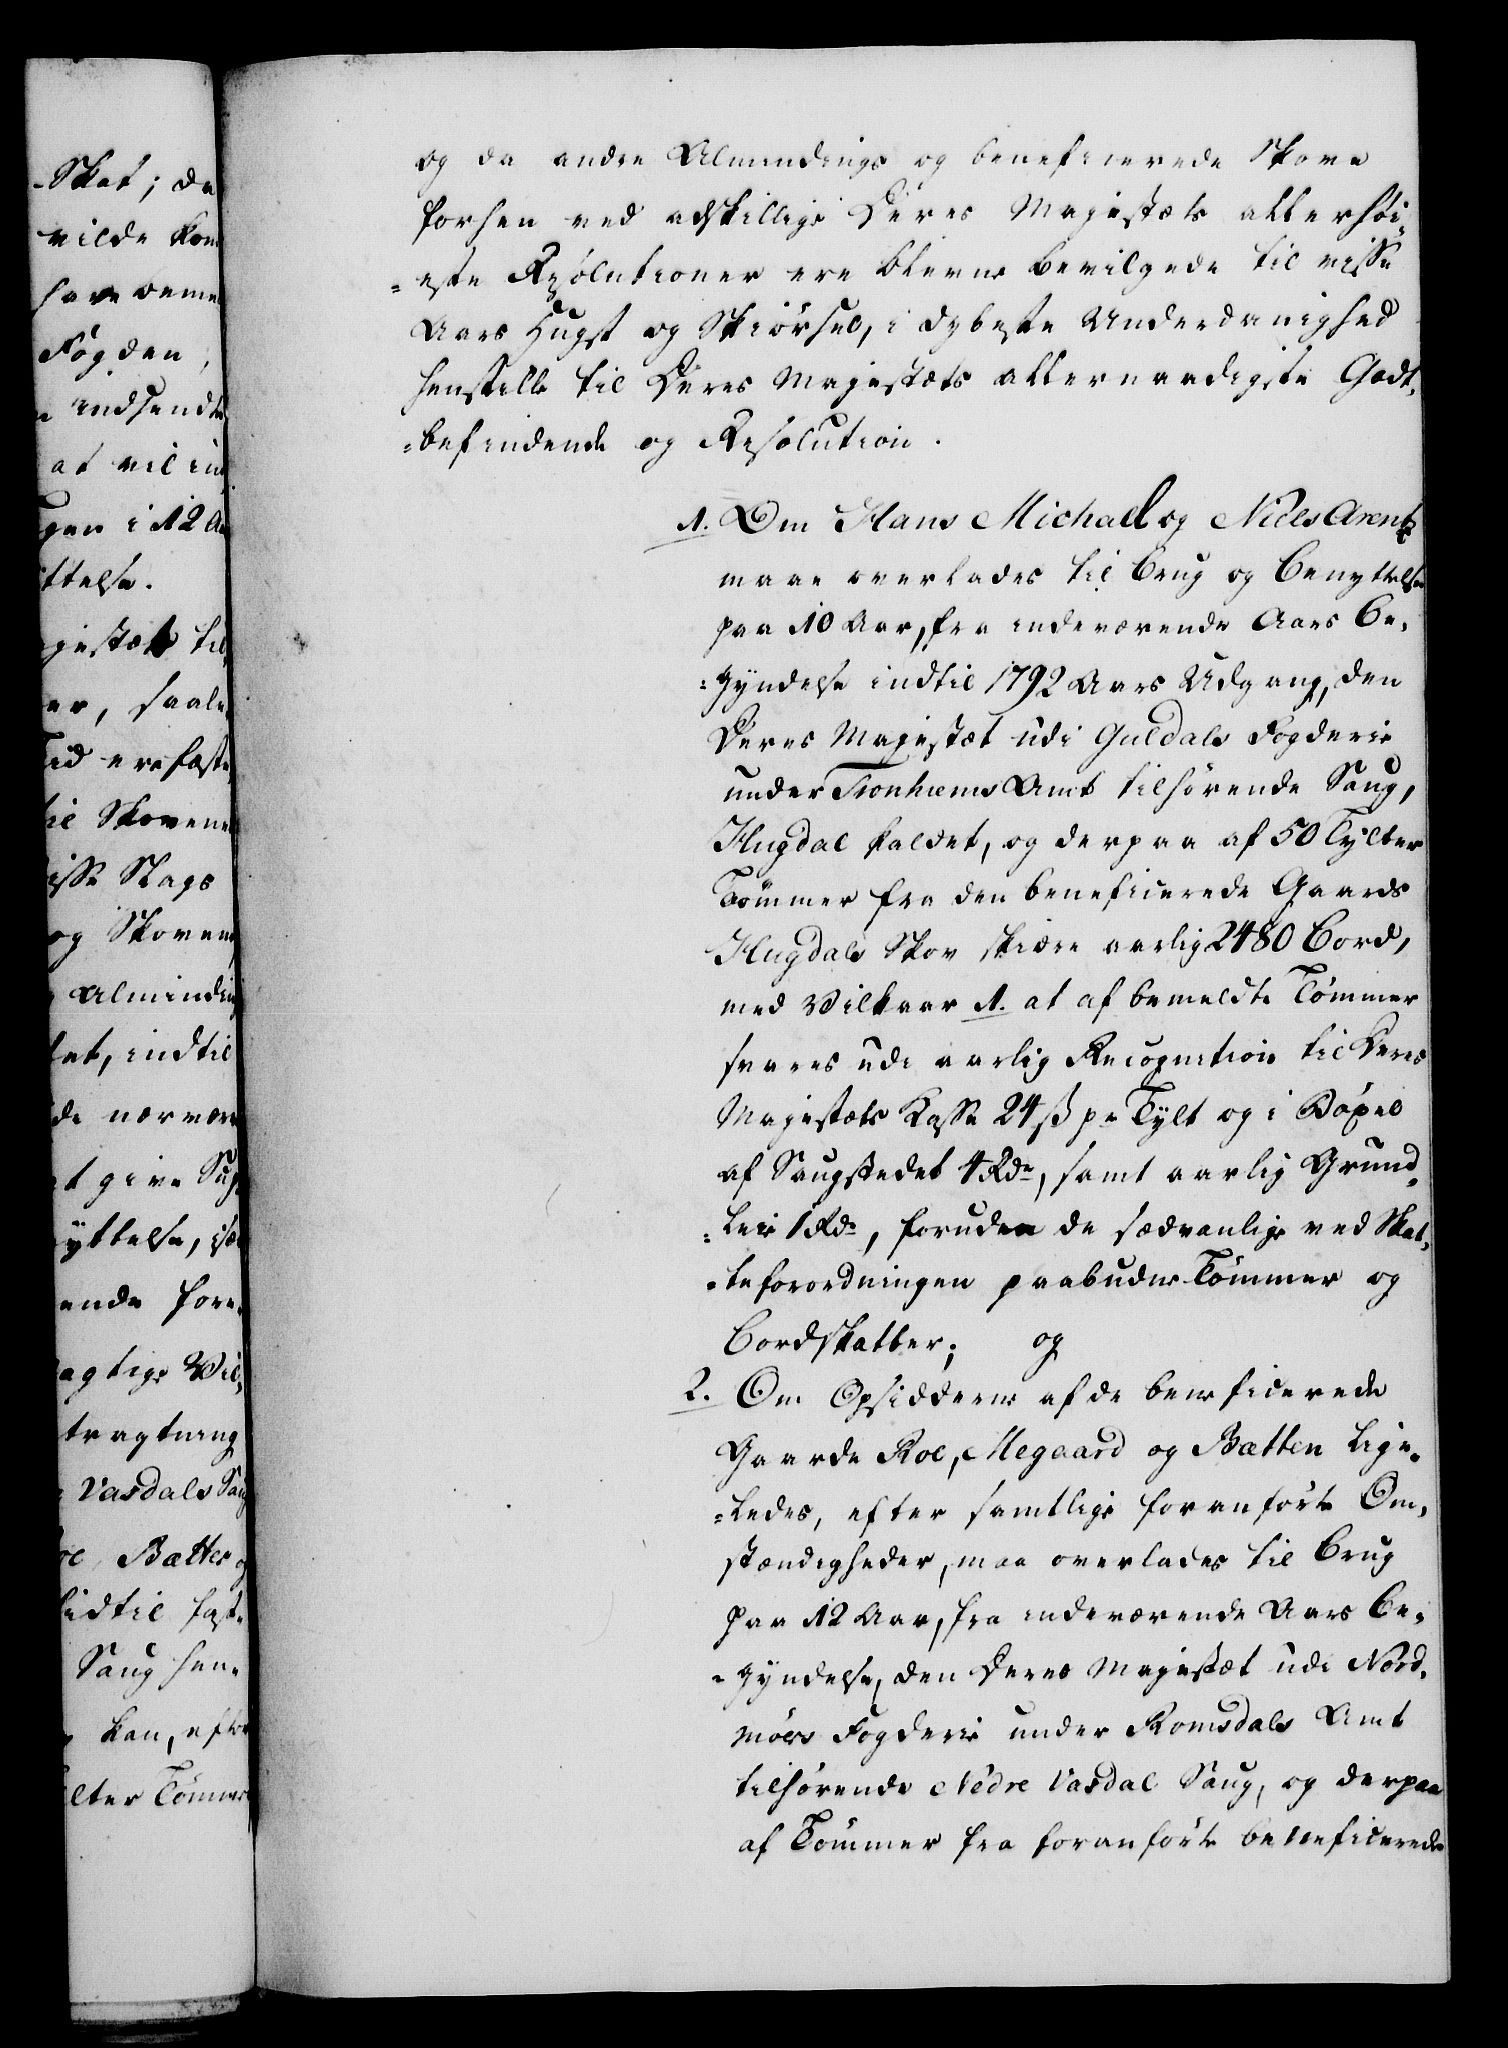 -Skat; da
vilde kom
have beme
Fogden,
indsendte
at vil ind
gen i 12 Aa
ttelse.
jestæts til
er, saale
tid ere faste
til Skovene
isse Slags
og Skovene
Alminding
let, indtil
de nærvære
et give
yttelse, isæ
ende fore-
agtige Vil-
tragtning
Vasdals Saug
oe, Bætten og
hidtil faste
Saug hen-
kan, efter
lter Tømmer
og da andre Almindings og beneficerede Skove
forhen ved adskillige Deres Majestæts allerhøi-
-este Resolutioner ere blevne bevilgede til visse
Aars Hugst og Skiørsel, i dybeste Underdanighed
henstille til Deres Majestæts allernaadigste Godt-
-befindende og Resolution.
1. Om Hans Michael og Niels Arentz
maae overlades til Brug og Benyttelse
paa 10 Aar, fra indeværende Aars Be-
-gyndelse indtil 1792 Aars Udgang, den
Deres Majestæt udi Guldals Fogderie
under Tronhiems Amt tilhørende Saug,
Hugdal kaldet, og derpaa af 50 Tylter
Tømmer fra den beneficerede Gaards
Hugdals Skov skiære aarlig 2480 Bord,
med Vilkaar 1. at af bemeldte Tømmer
svares udi aarlig Recognition til Deres
Majestæts Kasse 24 ß pr Tylt og i Bøxel
af Saugstedet 4 Rdr, samt aarlig Grund-
-leie 1 Rdr, foruden de sædvanlige ved Skat-
-teforordningen paabudne Tømmer og
Bordskatter; og
2. Om Opsidderne af de beneficerede
Gaarde Roe, Megaard og Bætten lige-
-ledes, efter samtlige foranførte Om-
stændigheder, maa overlades til Brug
paa 12 Aar, fra indeværende Aars Be-
-gyndelse, den Deres Majestæt udi Nord-
Møers Fogderie under Romsdals Amt
tilhørende Nedre Vasdal Saug, og derpaa
af Tømmer fra foranførte beneficerede